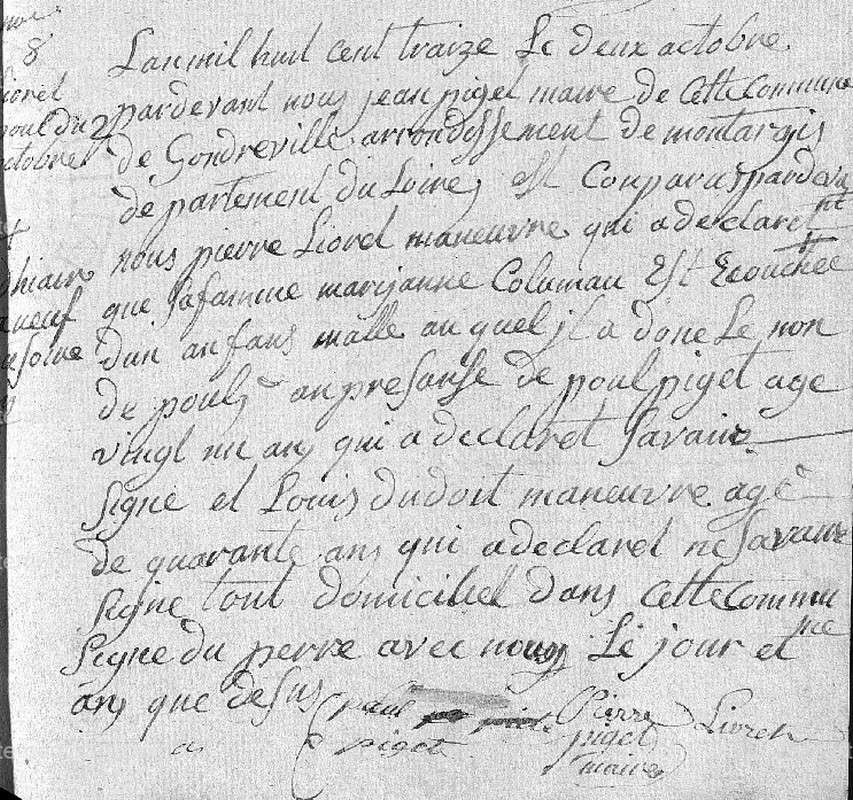 8
Lan mil huit cent traize Le deux octobre
pardevant nous jean piget maire de Cette Commune
de Gondreville arrondissement de montargis
departement du Loiret est Conparus pardeva
nt
nous pierre Lioret maneuvre qui a declaret
que Safamme marijanne Columau Est Ecouchee
dun anfans malle au quel jl a done Le non
de poul anpresanse de poul piget age
vingt un ans qui a declaret Savair
Signe et Louis dudoit maneuvre age
de quarante ans qui adeclaret ne Savair
Signe tout domiciliel dans Cette Commu
ne
Signe du perre avec nous Le jour et
ans que desus
paul
piget
Pierre
piget
maire
Lioret